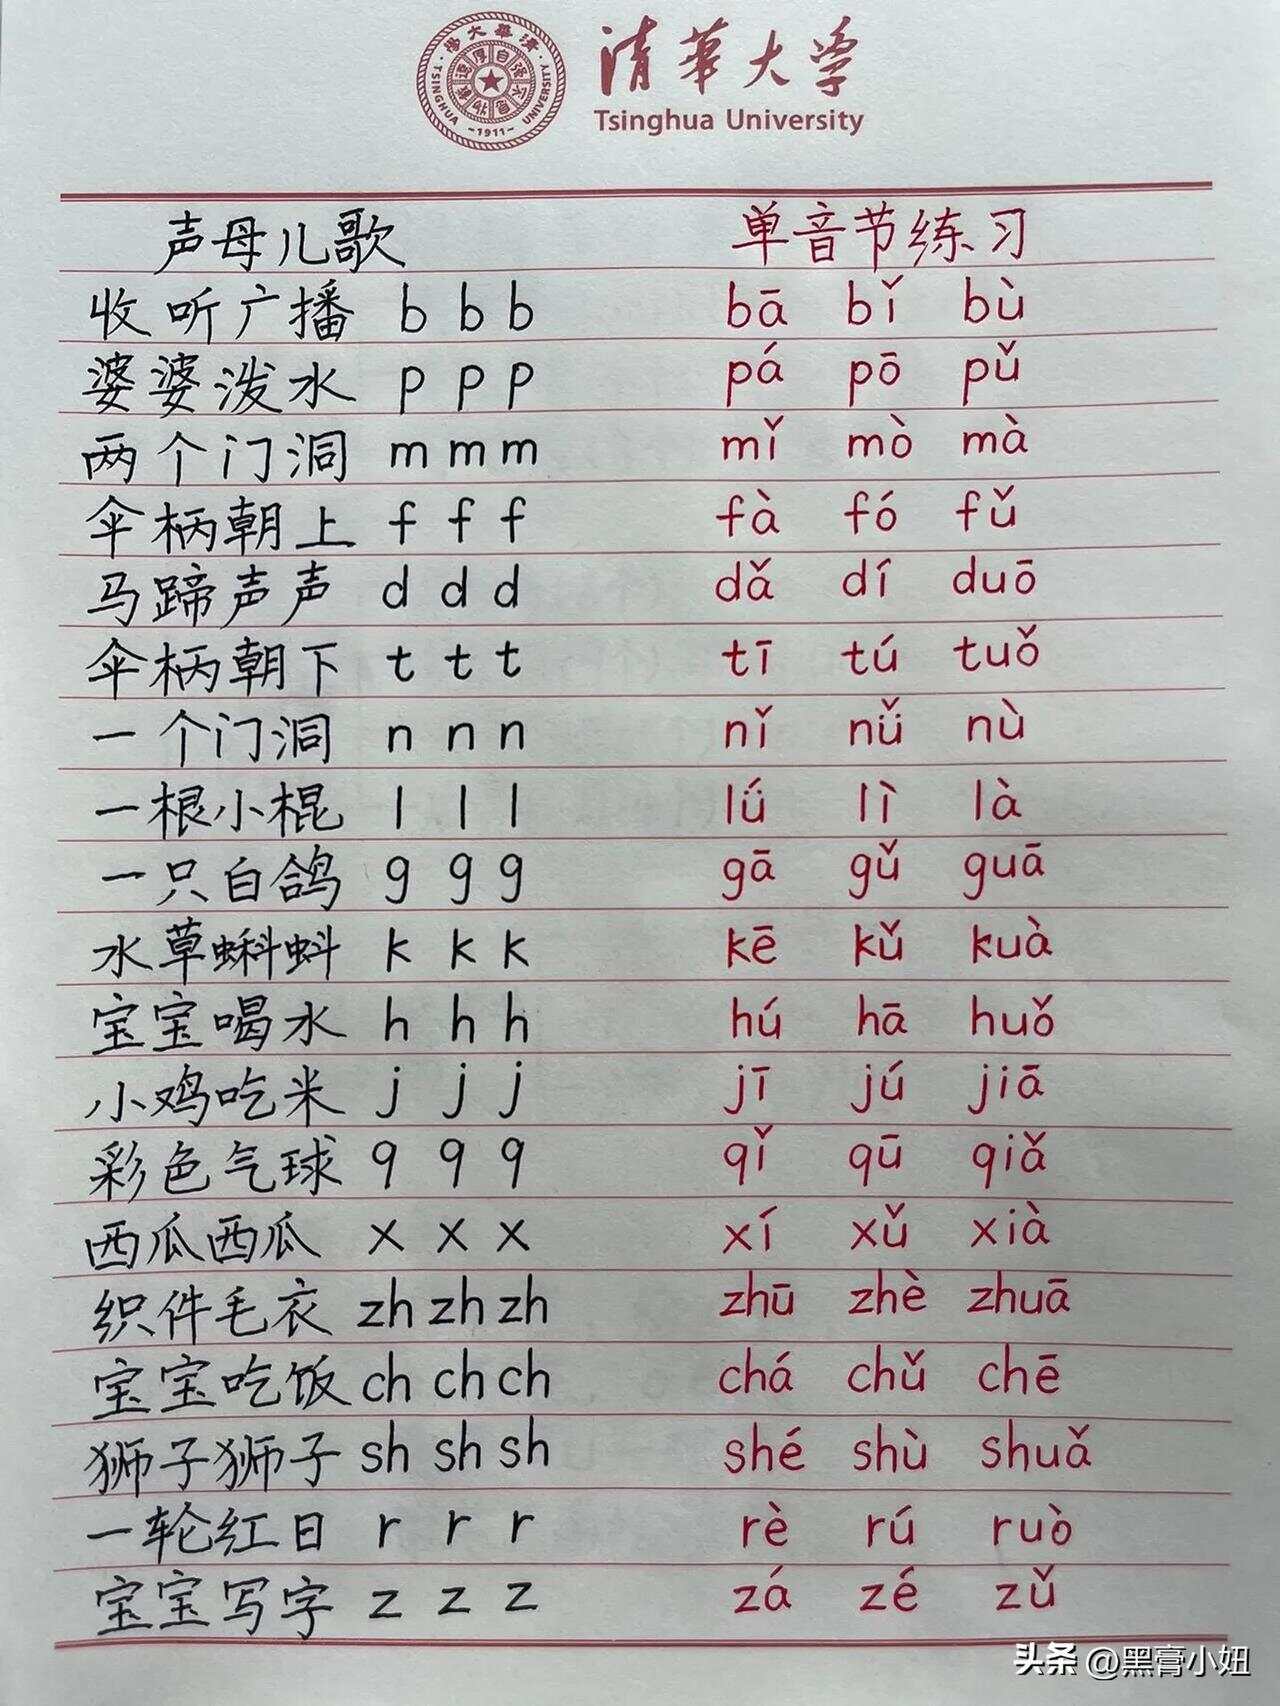 清華大学
Tsinghua University
TSINGHUA UNIVERSITY
-1911-
声母儿歌 单音节练习
收听广播 b b b bā bǐ bù
婆婆泼水 p p p pá pō pǔ
两个门洞 m m m mǐ mò mà
伞柄朝上 f f f fà fó fǔ
马蹄声声 d d d dǎ dí duō
伞柄朝下 t t t tī tú tuǒ
一个门洞 n n n nǐ nǚ nù
一根小棍 l l l lǘ lì là
一只白鸽 g g g gā gǔ guā
水草蝌蚪 k k k kē kǔ kuà
宝宝喝水 h h h hú hā huǒ
小鸡吃米 j j j jī jú jiā
彩色气球 q q q qǐ qū qiǎ
西瓜西瓜 x x x xí xǔ xià
织件毛衣 zh zh zh zhū zhè zhuā
宝宝吃饭 ch ch ch chá chǔ chē
狮子狮子 sh sh sh shé shù shuǎ
一轮红日 r r r rè rú ruò
宝宝写字 z z z zá zé zǔ
头条 @黑膏小妞